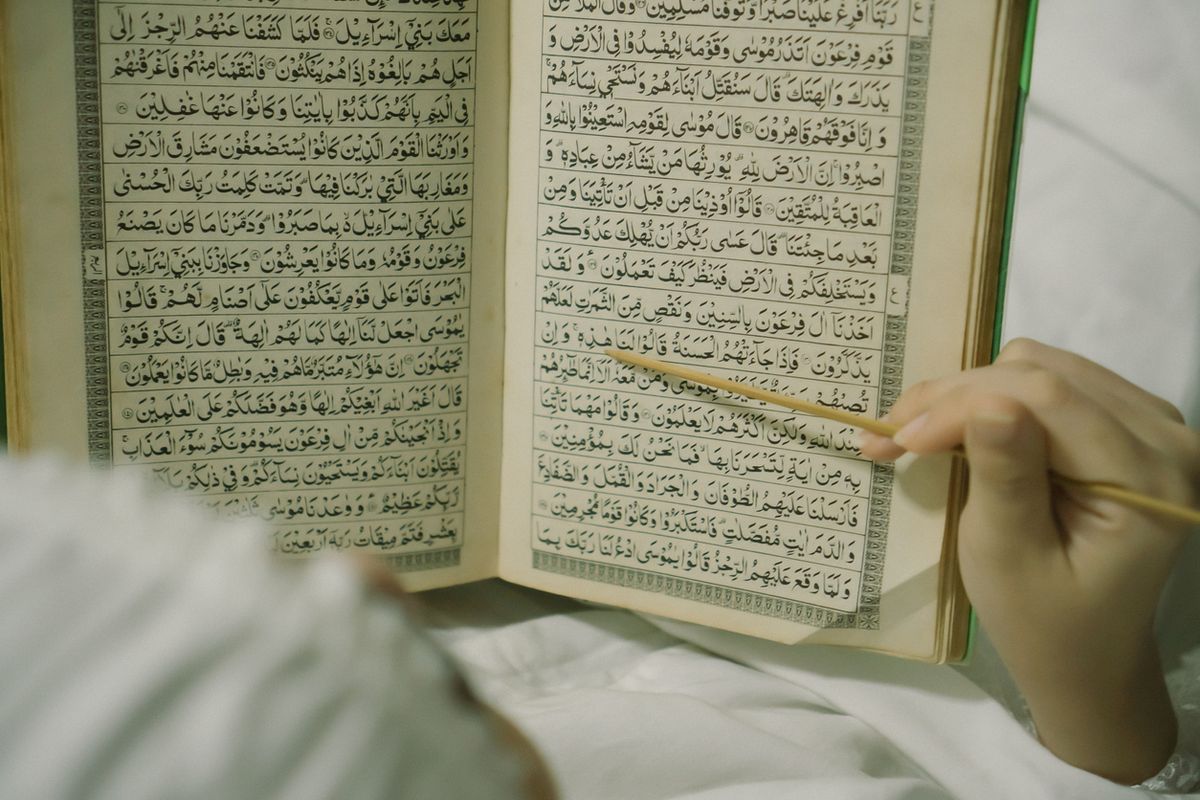 رَبَّنَا اَفْرِغْ عَلَيْنَا صَبْرًا وَّتَوَفَّنَا مُسْلِمِيْنَ ۝ وَقَالَ الْمَلَاُ مِنْ
قَوْمِ فِرْعَوْنَ اَتَذَرُ مُوْسٰى وَقَوْمَهٗ لِيُفْسِدُوْا فِى الْاَرْضِ وَ
يَذَرَكَ وَاٰلِهَتَكَ ؕ قَالَ سَنُقَتِّلُ اَبْنَآءَهُمْ وَنَسْتَحْىٖ نِسَآءَهُمْ ۚ
وَاِنَّا فَوْقَهُمْ قَاهِرُوْنَ ۝ قَالَ مُوْسٰى لِقَوْمِهِ اسْتَعِيْنُوْا بِاللّٰهِ وَ
اصْبِرُوْا ۚ اِنَّ الْاَرْضَ لِلّٰهِ ۙ يُوْرِثُهَا مَنْ يَّشَآءُ مِنْ عِبَادِهٖ ؕ وَ
الْعَاقِبَةُ لِلْمُتَّقِيْنَ ۝ قَالُوْۤا اُوْذِيْنَا مِنْ قَبْلِ اَنْ تَاْتِيَنَا وَمِنْۢ
بَعْدِ مَا جِئْتَنَا ؕ قَالَ عَسٰى رَبُّكُمْ اَنْ يُّهْلِكَ عَدُوَّكُمْ
وَيَسْتَخْلِفَكُمْ فِى الْاَرْضِ فَيَنْظُرَ كَيْفَ تَعْمَلُوْنَ ۝ وَلَقَدْ
اَخَذْنَاۤ اٰلَ فِرْعَوْنَ بِالسِّنِيْنَ وَنَقْصٍ مِّنَ الثَّمَرٰتِ لَعَلَّهُمْ
يَذَّكَّرُوْنَ ۝ فَاِذَا جَآءَتْهُمُ الْحَسَنَةُ قَالُوْا لَنَا هٰذِهٖ ۚ وَاِنْ
تُصِبْهُمْ سَيِّئَةٌ يَّطَّيَّرُوْا بِمُوْسٰى وَمَنْ مَّعَهٗ ؕ اَلَاۤ اِنَّمَا طٰٓئِرُهُمْ
عِنْدَ اللّٰهِ وَلٰكِنَّ اَكْثَرَهُمْ لَا يَعْلَمُوْنَ ۝ وَقَالُوْا مَهْمَا تَاْتِنَا
بِهٖ مِنْ اٰيَةٍ لِّتَسْحَرَنَا بِهَا ۙ فَمَا نَحْنُ لَكَ بِمُؤْمِنِيْنَ ۝
فَاَرْسَلْنَا عَلَيْهِمُ الطُّوْفَانَ وَالْجَرَادَ وَالْقُمَّلَ وَالضَّفَادِعَ
وَالدَّمَ اٰيٰتٍ مُّفَصَّلٰتٍ ۫ فَاسْتَكْبَرُوْا وَكَانُوْا قَوْمًا مُّجْرِمِيْنَ ۝
وَلَمَّا وَقَعَ عَلَيْهِمُ الرِّجْزُ قَالُوْا يٰمُوْسَى ادْعُ لَنَا رَبَّكَ بِمَا
مَعَكَ بَنِيْۤ اِسْرَآءِيْلَ ۝ فَلَمَّا كَشَفْنَا عَنْهُمُ الرِّجْزَ اِلٰٓى
اَجَلٍ هُمْ بٰلِغُوْهُ اِذَا هُمْ يَنْكُثُوْنَ ۝ فَانْتَقَمْنَا مِنْهُمْ فَاَغْرَقْنٰهُمْ
فِى الْيَمِّ بِاَنَّهُمْ كَذَّبُوْا بِاٰيٰتِنَا وَكَانُوْا عَنْهَا غٰفِلِيْنَ ۝
وَاَوْرَثْنَا الْقَوْمَ الَّذِيْنَ كَانُوْا يُسْتَضْعَفُوْنَ مَشَارِقَ الْاَرْضِ
وَمَغَارِبَهَا الَّتِيْ بٰرَكْنَا فِيْهَا ؕ وَتَمَّتْ كَلِمَتُ رَبِّكَ الْحُسْنٰى
عَلٰى بَنِيْۤ اِسْرَآءِيْلَ ۙ بِمَا صَبَرُوْا ؕ وَدَمَّرْنَا مَا كَانَ يَصْنَعُ
فِرْعَوْنُ وَقَوْمُهٗ وَمَا كَانُوْا يَعْرِشُوْنَ ۝ وَجَاوَزْنَا بِبَنِيْۤ اِسْرَآءِيْلَ
الْبَحْرَ فَاَتَوْا عَلٰى قَوْمٍ يَّعْكُفُوْنَ عَلٰۤى اَصْنَامٍ لَّهُمْ ۚ قَالُوْا
يٰمُوْسَى اجْعَلْ لَّنَاۤ اِلٰهًا كَمَا لَهُمْ اٰلِهَةٌ ؕ قَالَ اِنَّكُمْ قَوْمٌ
تَجْهَلُوْنَ ۝ اِنَّ هٰۤؤُلَآءِ مُتَبَّرٌ مَّا هُمْ فِيْهِ وَبٰطِلٌ مَّا كَانُوْا يَعْمَلُوْنَ ۝
قَالَ اَغَيْرَ اللّٰهِ اَبْغِيْكُمْ اِلٰهًا وَّهُوَ فَضَّلَكُمْ عَلَى الْعٰلَمِيْنَ ۝
وَاِذْ اَنْجَيْنٰكُمْ مِّنْ اٰلِ فِرْعَوْنَ يَسُوْمُوْنَكُمْ سُوْٓءَ الْعَذَابِ ۚ
يُقَتِّلُوْنَ اَبْنَآءَكُمْ وَيَسْتَحْيُوْنَ نِسَآءَكُمْ ؕ وَفِيْ ذٰلِكُمْ بَلَآءٌ
رَّبِّكُمْ عَظِيْمٌ ۝ وَوٰعَدْنَا مُوْسٰى ثَلٰثِيْنَ
بِعَشْرٍ فَتَمَّ مِيْقَاتُ رَبِّهٖۤ اَرْبَعِيْنَ